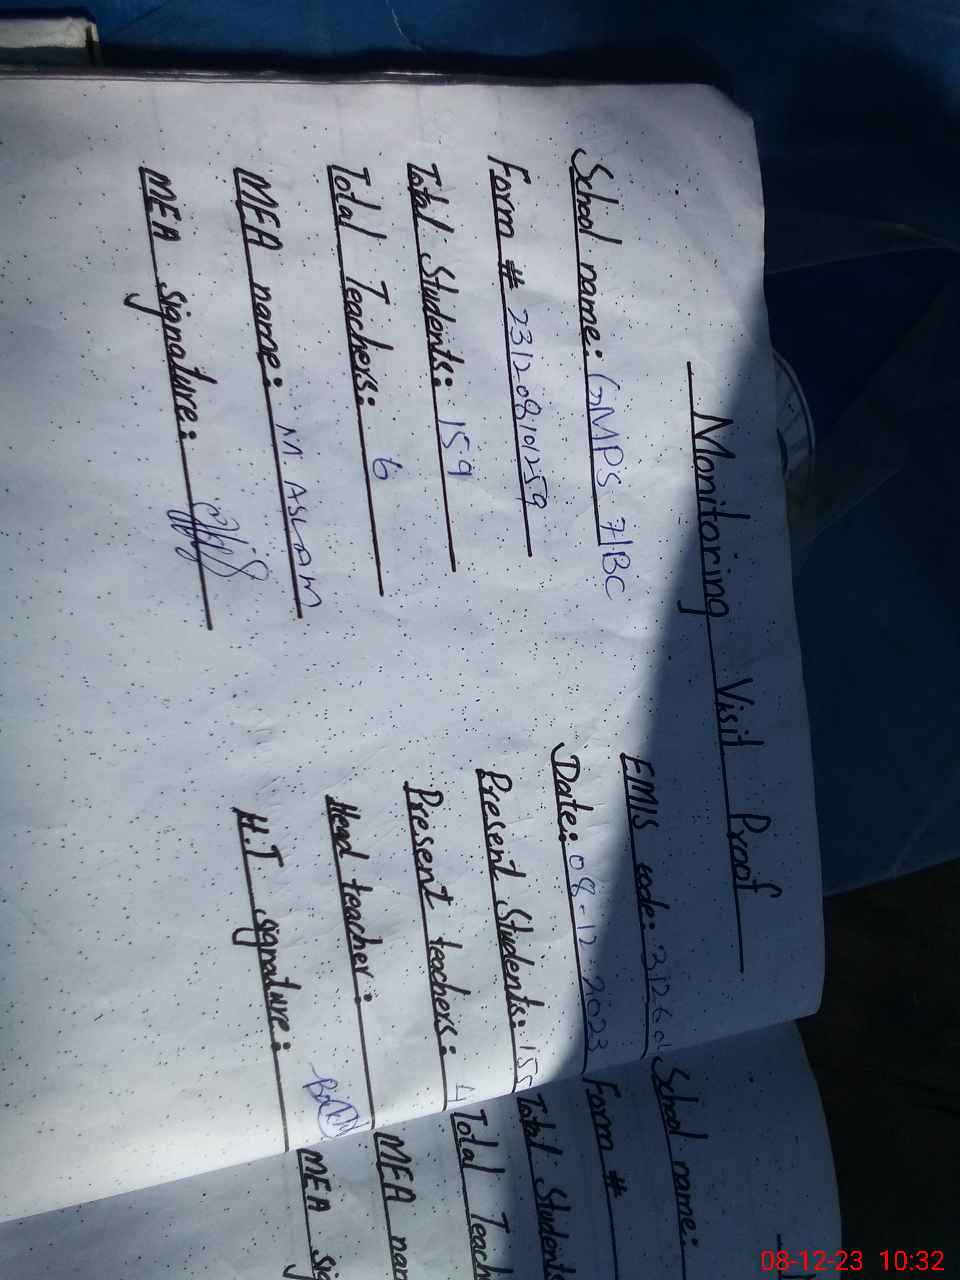 Monitoring Visit Proof
School name: GMPS 71BC
EMIS code: 31260
Form # 231208101259
Date: 08-12-2023
Total Students: 159
Present Students: 155
Total Teachers: 6
Present teachers: 4
MEA name: M. ASLAM
Head teacher:
MEA signature:
H.T signature:
School name:
Form #
Total Students
Total Teach
MEA nam
MEA sig
08-12-23 10:32